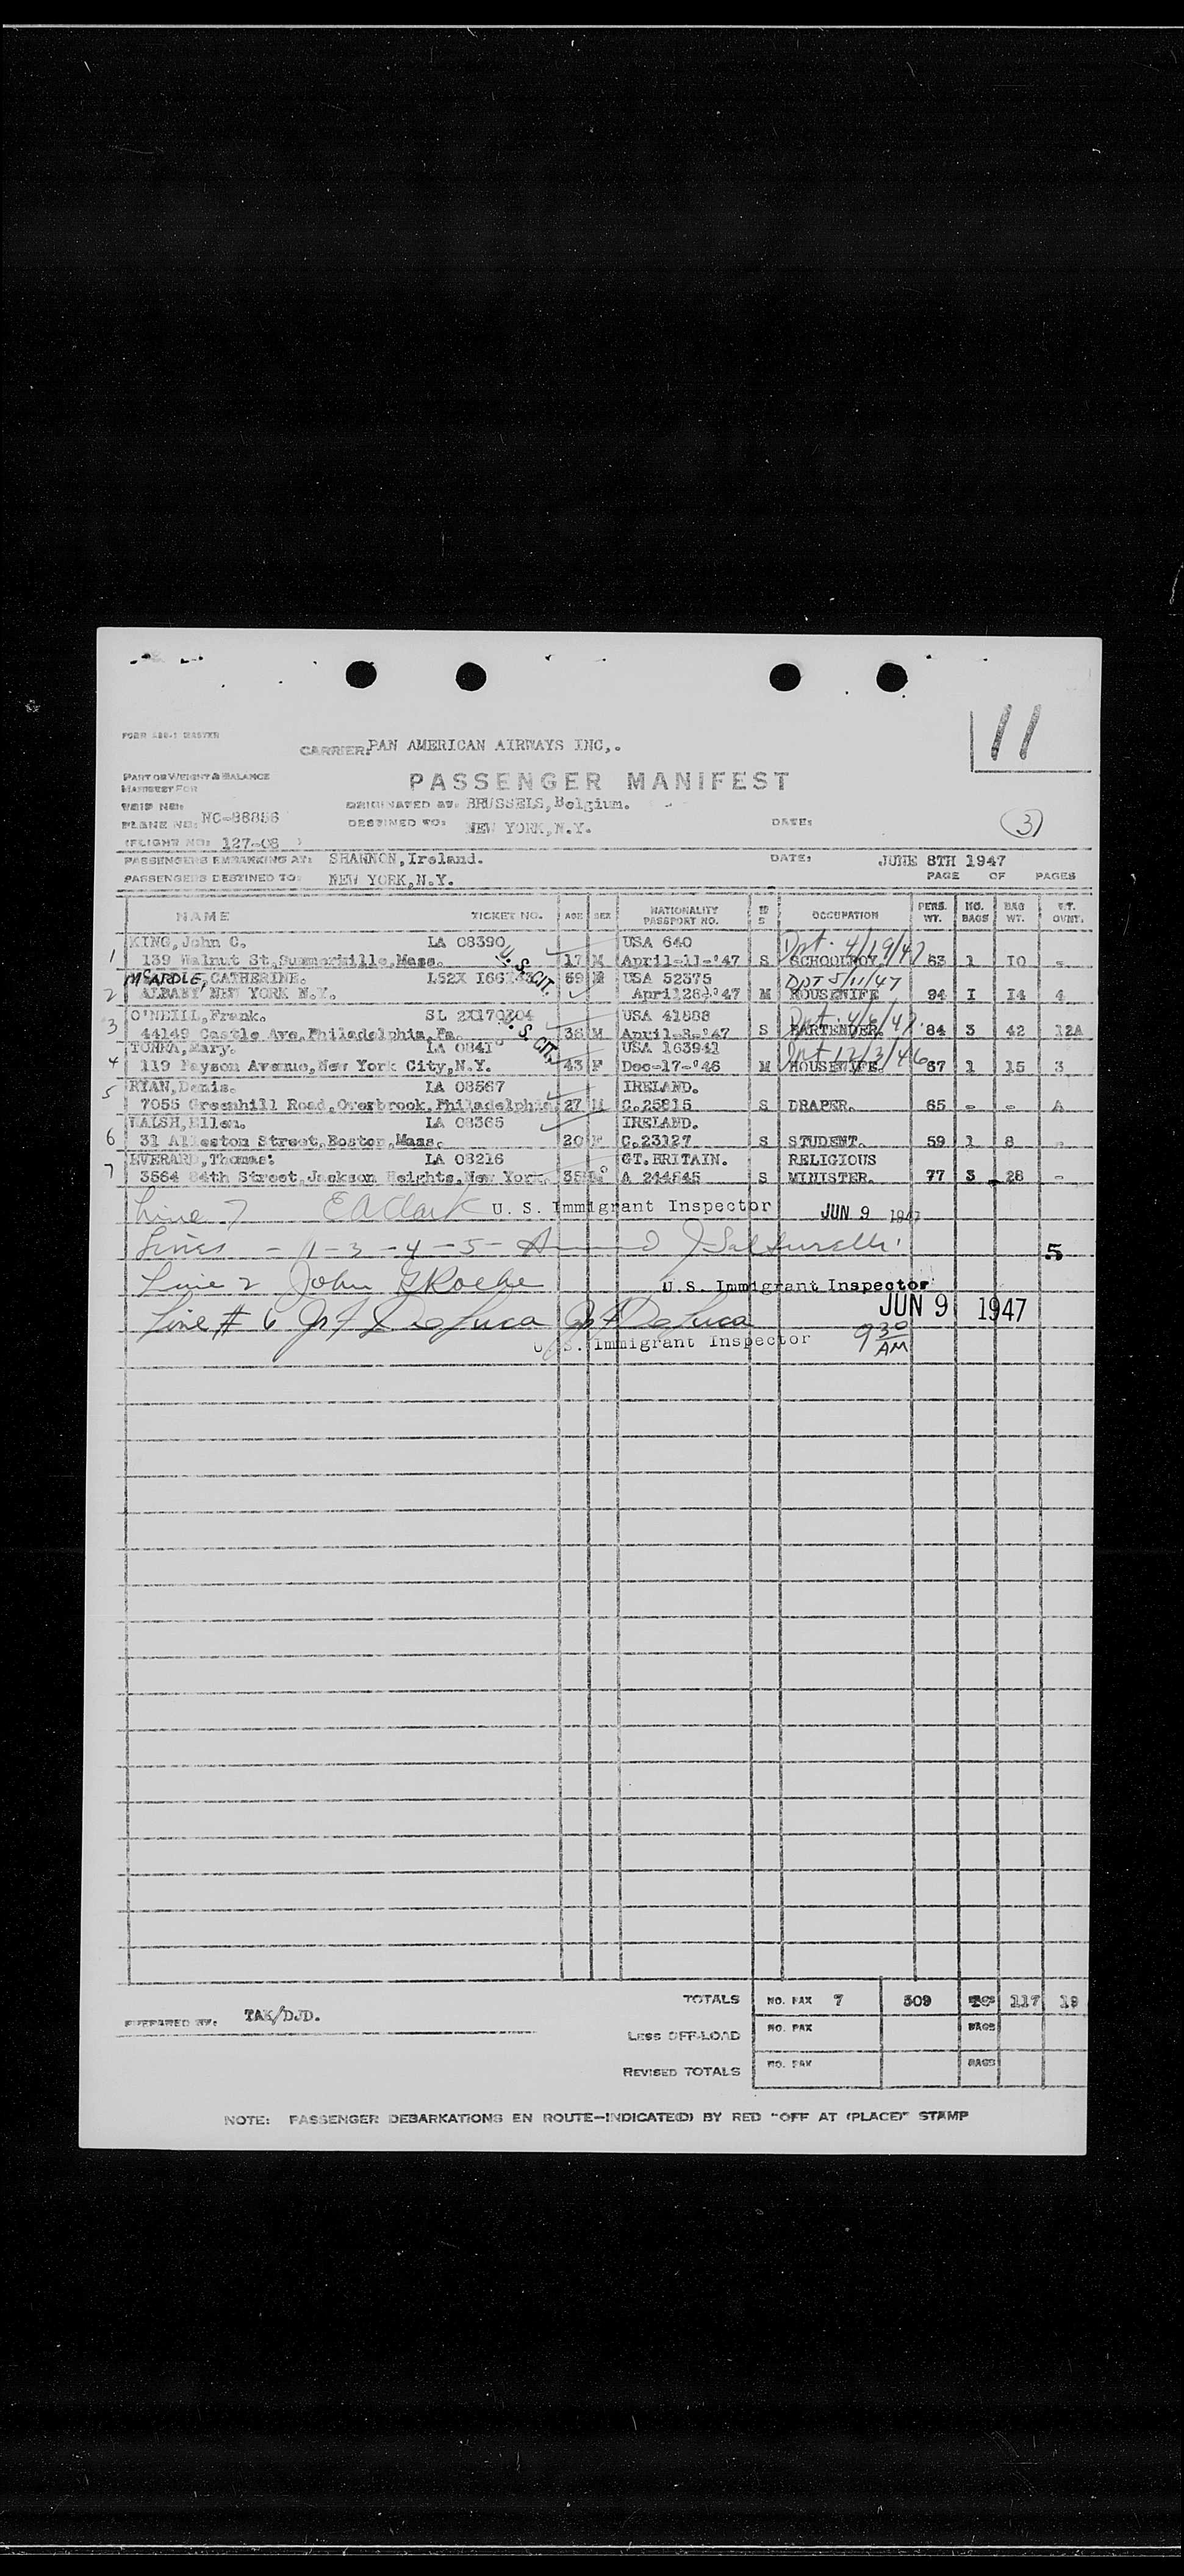 11
FORM MASTER
CARRIER: PAN AMERICAN AIRWAYS INC,.
PART OF WEIGHT & BALANCE
MANIFEST FOR
PASSENGER MANIFEST
TRIP NO:
ORIGINATED AT: BRUSSELS, Belgium.
PLANE NO: NC-88856
DESTINED TO: NEW YORK, N.Y.
DATE:
3
(FLIGHT NO: 127-08 )
PASSENGERS EMBARKING AT: SHANNON, Ireland.
DATE: JUNE 8TH 1947
PASSENGERS DESTINED TO: NEW YORK, N.Y.
PAGE OF PAGES
NAME TICKET NO. AGE SEX NATIONALITY PASSPORT NO. OCCUPATION PERS. WT. NO. BAGS BAG WT. WT. OVWT.
KING, John C. LA 08390 USA 640 Dpt. 4/19/47
1 139 Walnut St, Summerhille, Mass. U. S. CIT. 17 M April-11-'47 S SCHOOLBOY. 63 1 10 -
McARDLE, CATHERINE. USA 52375 DPT 5/11/47
2 ALBANY NEW YORK N.Y. 59 F April 28 '47 M HOUSEWIFE 94 I I4 4
O'NEILL, Frank. SL USA 41888 Dpt.
3 44149 Castle Ave, Philadelphia, Pa. U. S. CIT. 36 M April-8-'47 S BARTENDER. 84 3 42 12A
TONRA, Mary. LA USA 163941 Dpt 12/3/46
4 119 Payson Avenue, New York City, N.Y. 43 F Dec-17-'46 M HOUSEWIFE. 67 1 15 3
RYAN, Denis. LA 08567 IRELAND.
5 7055 Greenhill Road, Overbrook, Philadelphia 27 M C.25815 S DRAPER. 65 - - A
WALSH, Ellen. LA 08365 IRELAND.
6 31 Alleston Street, Boston, Mass. 20 F C.23127 S STUDENT. 59 1 8 -
EVERARD, Thomas. LA 08216 GT. BRITAIN. RELIGIOUS
7 3564 84th Street, Jackson Heights, New York. A 244845 S MINISTER. 77 3 28 -
Line 7 E A Clark U. S. Immigrant Inspector JUN 9 1947
Lines - 1-3-4-5-
5
Line 2 John Roche
U.S. Immigrant Inspector
JUN 9 1947
Line # 6 DeLuca DeLuca
U. S. Immigrant Inspector 9 30 AM
TOTALS NO. PAX 7 509 117 19
PREPARED BY: TAK/DJD.
LESS OFF-LOAD NO. PAX BAGS
REVISED TOTALS NO. PAX BAGS
NOTE: PASSENGER DEBARKATIONS EN ROUTE—INDICATE(D) BY RED "OFF AT (PLACE)" STAMP